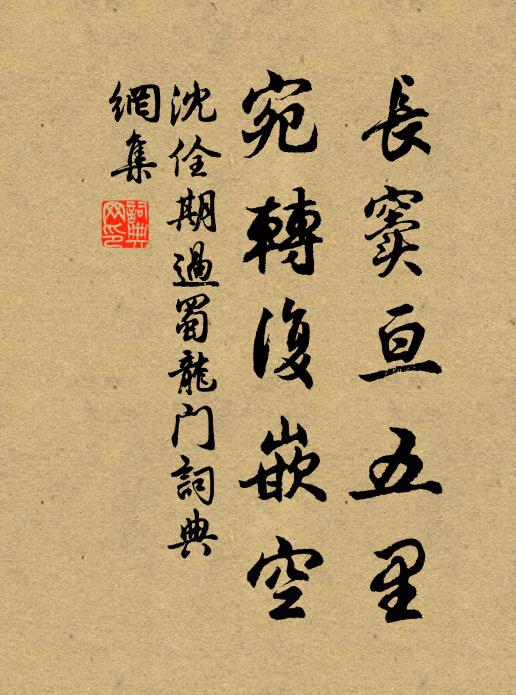 長竇亘五里
宛轉復嵌空
沈佺期過蜀龍门詞典
網集
詞典
网印